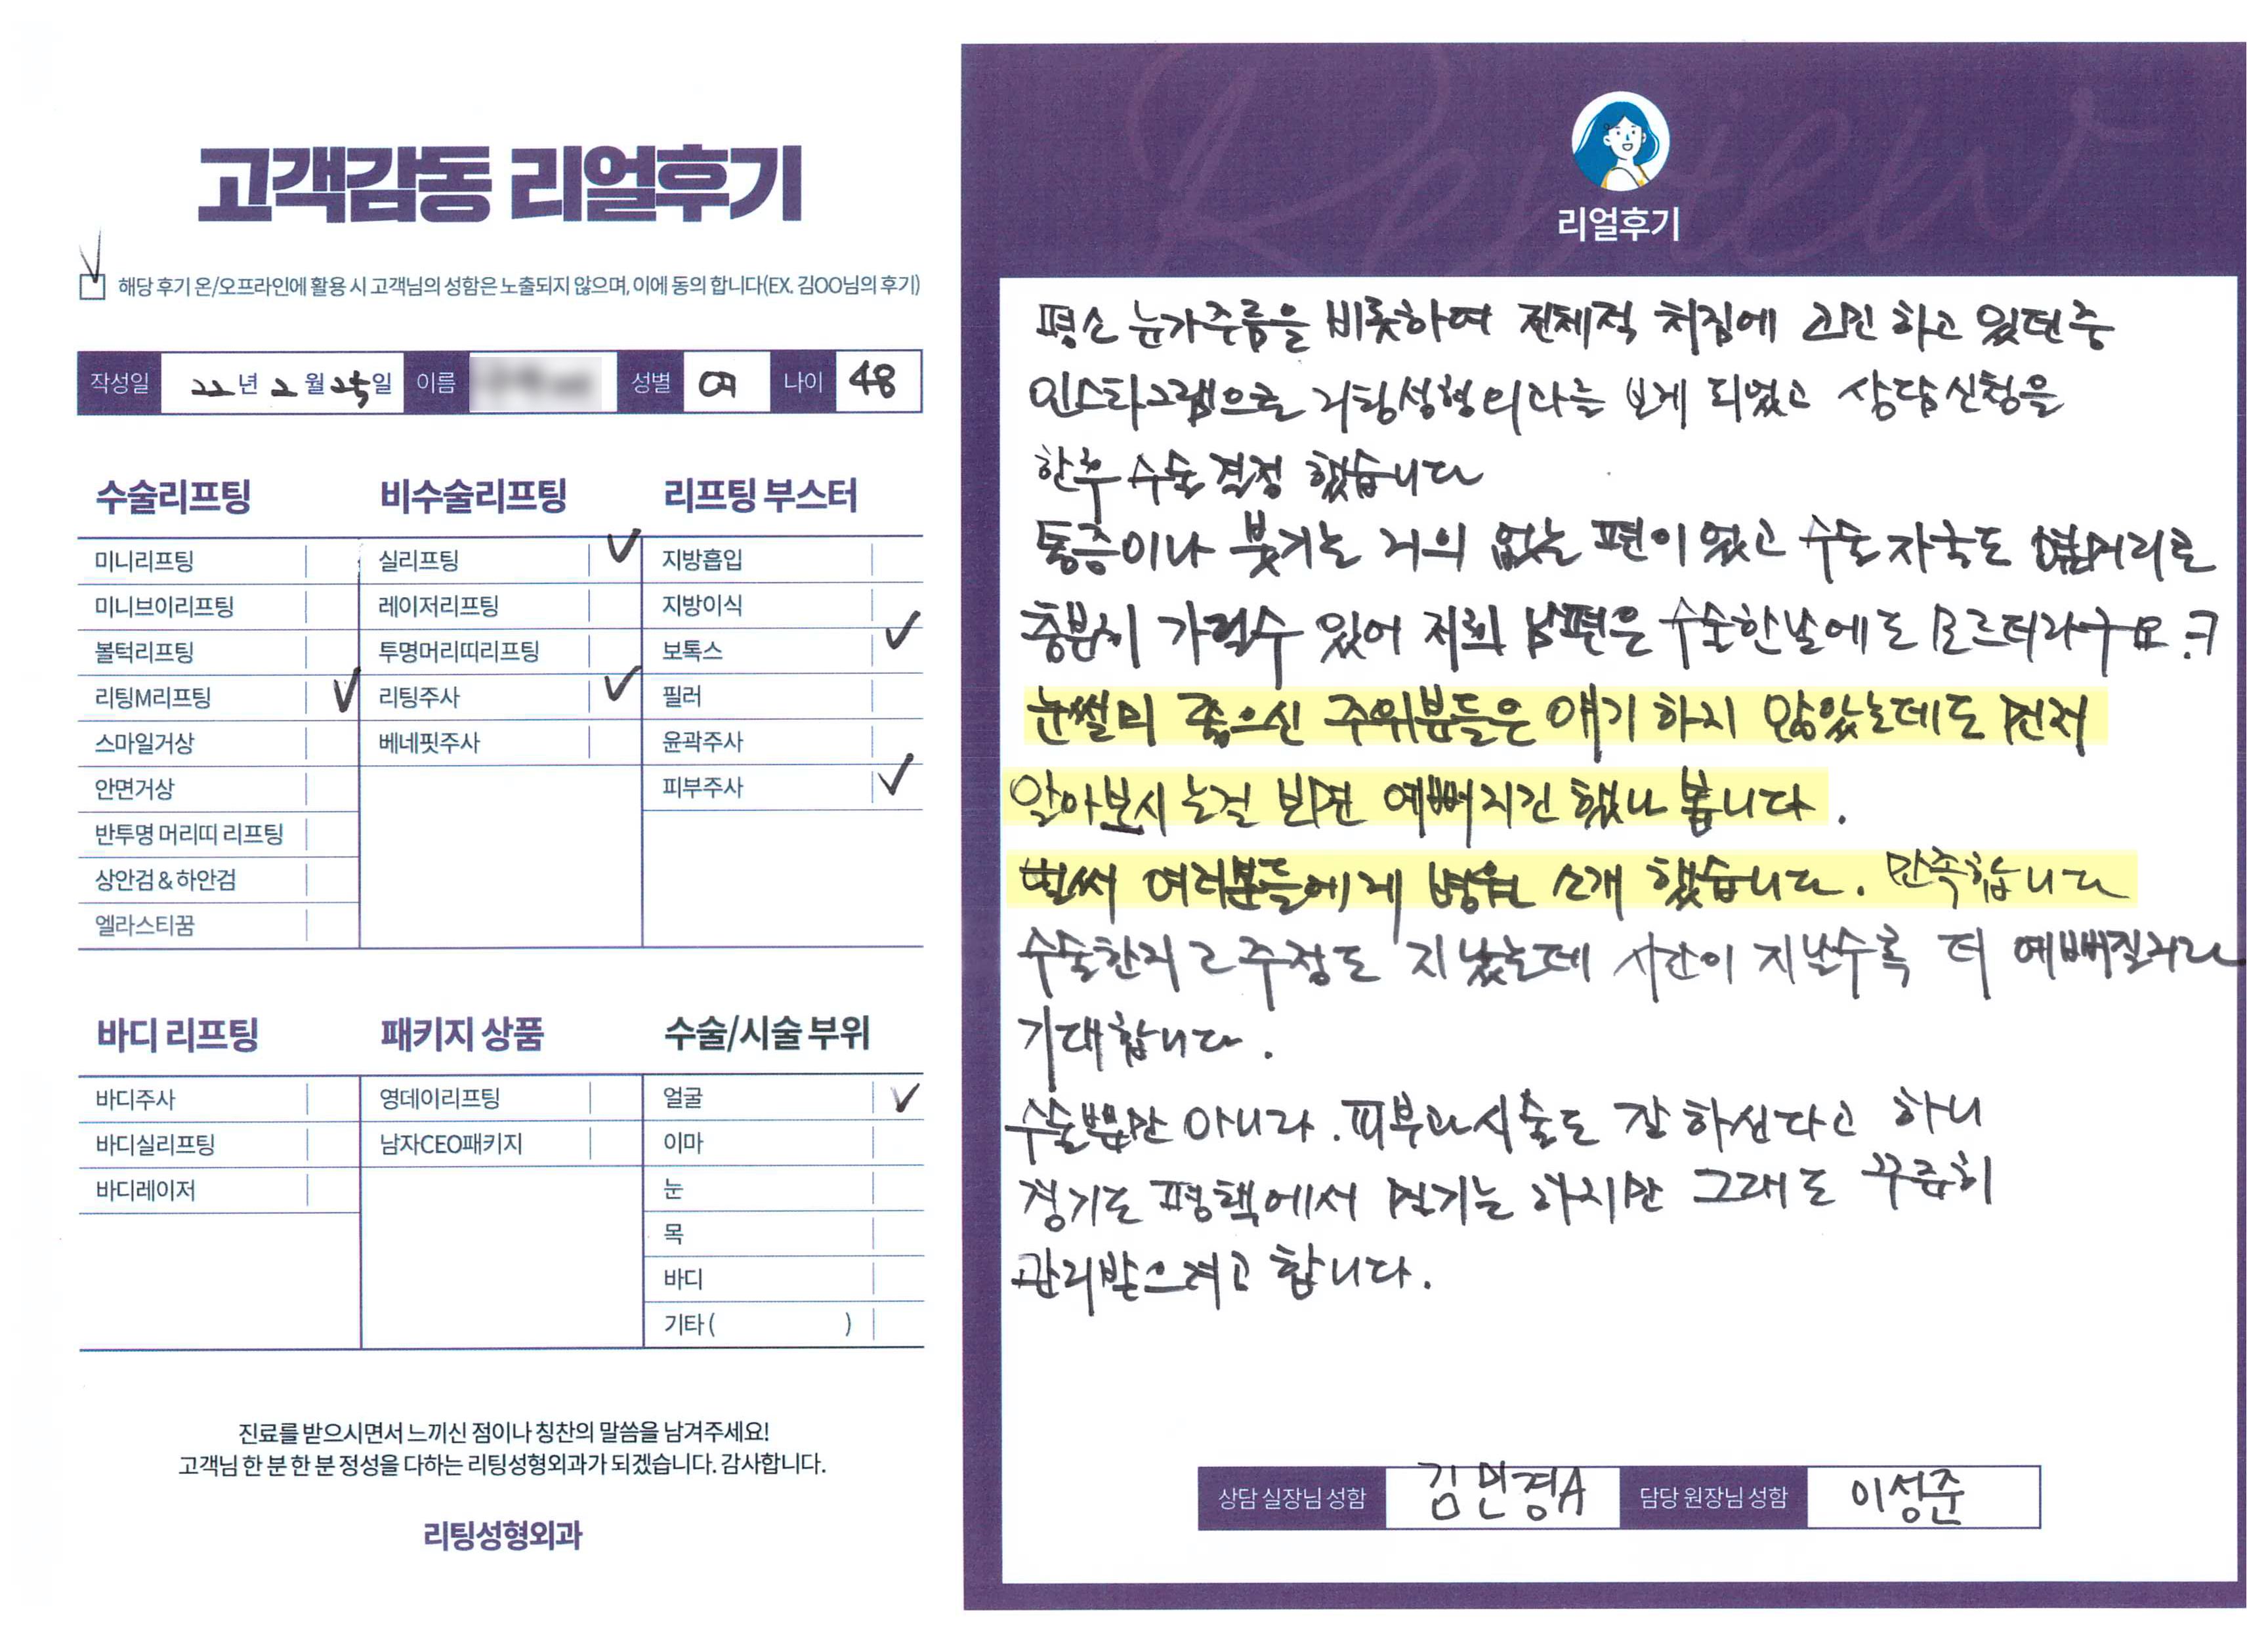 고객감동 리얼후기
해당 후기 온/오프라인에 활용 시 고객님의 성함은 노출되지 않으며, 이에 동의 합니다(EX. 김OO님의 후기)
작성일 22년 2월 25일 이름 성별 여 나이 48
수술리프팅
미니리프팅
미니브이리프팅
볼턱리프팅
리팅M리프팅
스마일거상
안면거상
반투명 머리띠 리프팅
상안검 & 하안검
엘라스티꿈
비수술리프팅
실리프팅
레이저리프팅
투명머리띠리프팅
리팅주사
베네핏주사
리프팅 부스터
지방흡입
지방이식
보톡스
필러
윤곽주사
피부주사
바디 리프팅
바디주사
바디실리프팅
바디레이저
패키지 상품
영데이리프팅
남자CEO패키지
수술/시술 부위
얼굴
이마
눈
목
바디
기타 ( )
진료를 받으시면서 느끼신 점이나 칭찬의 말씀을 남겨주세요!
고객님 한 분 한 분 정성을 다하는 리팅성형외과가 되겠습니다. 감사합니다.
리팅성형외과
Review
리얼후기
평소 눈가주름을 비롯하여 전체적 처짐에 고민 하고 있던중
인스타그램으로 리팅성형외과를 보게 되었고 상담신청을
한후 수술 결정 했습니다
통증이나 붓기는 거의 없는 편이 였고 수술 자국도 옆머리로
충분히 가릴수 있어 저희 남편은 수술한날에도 모르더라구요. ㅋ
눈썰미 좋으신 주위분들은 얘기 하지 않았는데도 먼저
알아보시는걸 보면 예뻐지긴 했나 봅니다.
벌써 여러분들에게 병원 소개 했습니다. 만족합니다
수술한지 2주정도 지났는데 시간이 지날수록 더 예뻐질거라
기대합니다.
수술뿐만 아니라. 피부과시술도 잘 하신다고 하니
경기도 평택에서 멀기는 하지만 그래도 꾸준히
관리받으려고 합니다.
상담 실장님 성함 김민경A 담당 원장님 성함 이성준